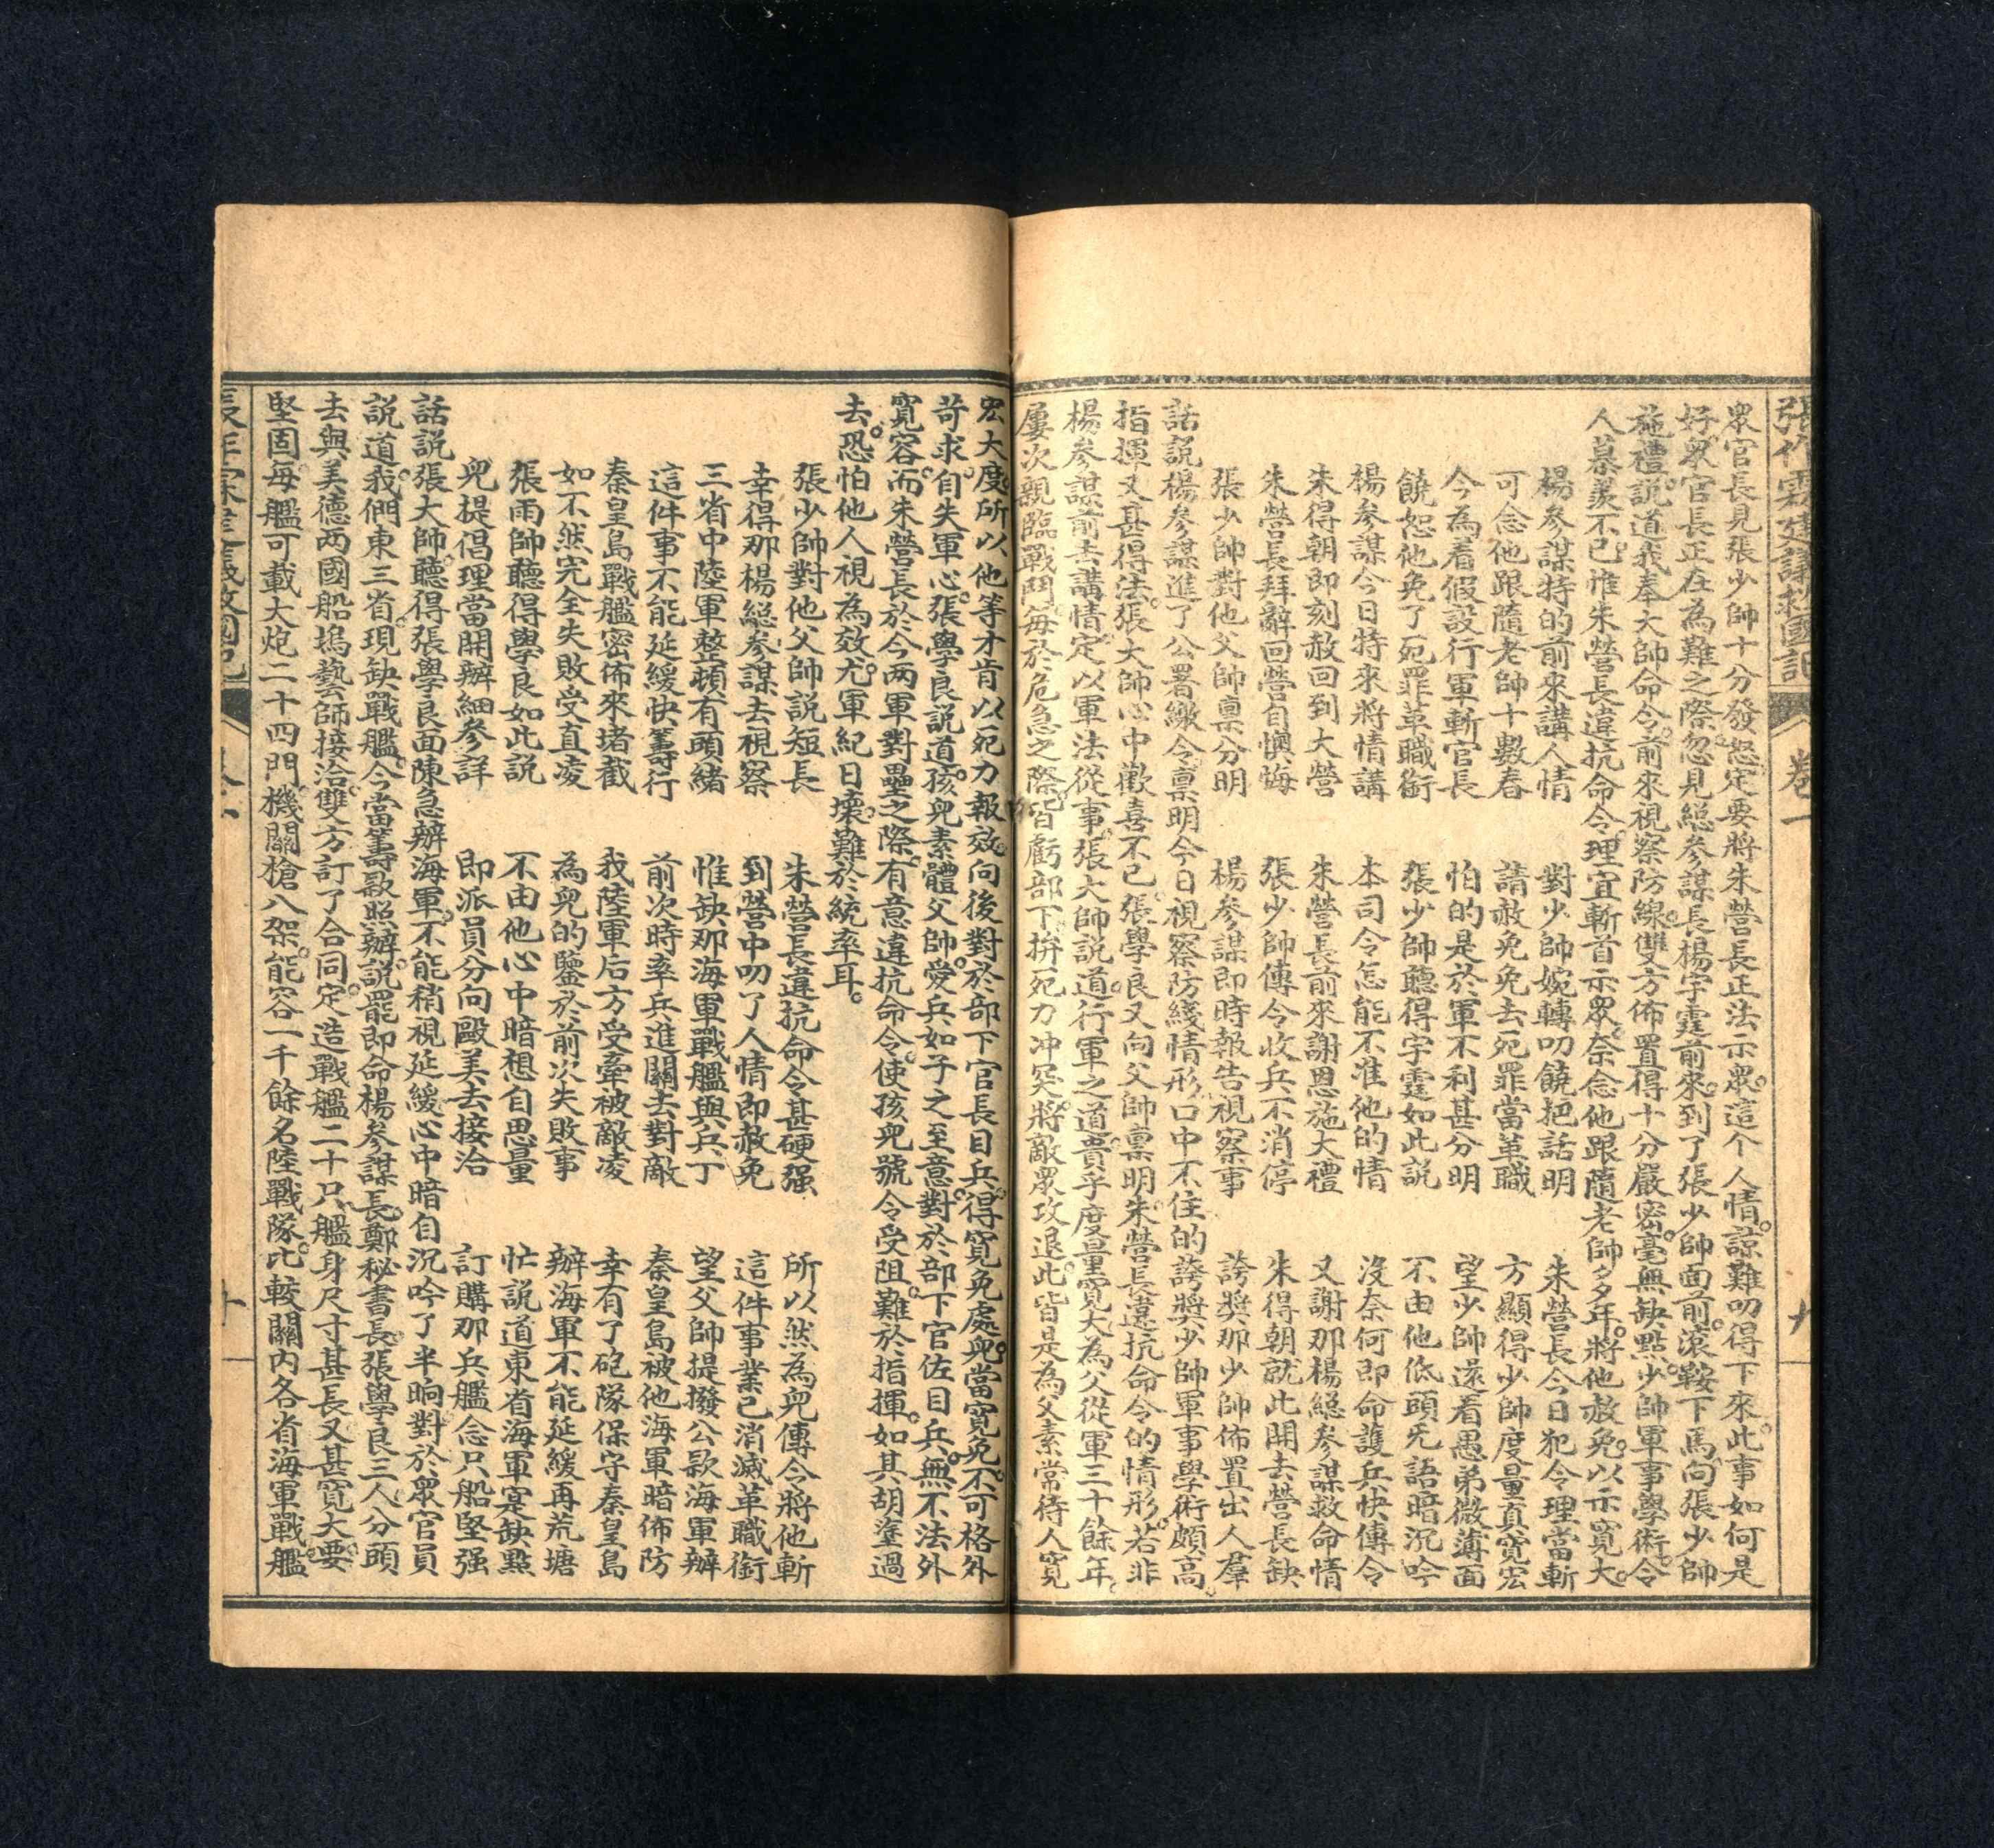 張作霖建議救國記 卷一 九
眾官長見張少帥十分發怒定要將朱營長正法示眾。這个人情。諒難叨得下來。此事如何是
好。眾官長正在為難之際。忽見總參謀長楊宇霆前來。到了張少帥面前。滾鞍下馬。向張少帥
施禮。說道。我奉大帥命令。前來視察防線。雙方佈置得十分嚴密。毫無缺點。少帥軍事學術。令
人慕羨不已。惟朱營長違抗命令。理宜斬首示眾。奈念他跟隨老帥多年。將他赦免。以示寬大。
楊參謀特的前來講人情 對少帥婉轉叨饒把話明 朱營長今日犯令理當斬
可念他跟隨老帥十數春 請赦免免去死罪當革職 方顯得少帥度量真寬宏
今為着假設行軍斬官長 怕的是於軍不利甚分明 望少帥還看愚弟微薄面
饒恕他免了死罪革職銜 張少帥聽得宇霆如此說 不由他低頭旡語暗沉吟
楊參謀今日特來將情講 本司令怎能不准他的情 沒奈何即命護兵快傳令
朱得朝即刻赦回到大營 朱營長前來謝恩施大禮 又謝那楊總參謀救命情
朱營長拜辭回營自懊悔 張少帥傳令收兵不消停 朱得朝就此開去營長缺
張少帥對他父帥稟分明 楊參謀即時報告視察事 誇獎那少帥佈置出人羣
話說楊參謀進了公署繳令。稟明今日視察防綫情形。口中不住的誇獎少帥軍事學術頗高。
指揮又甚得法。張大帥心中歡喜不已。張學良又向父帥稟明朱營長違抗命令的情形。若非
楊參謀前去講情。定以軍法從事。張大帥說道。行軍之道。貴乎度量寬大。為父從軍三十餘年。
屢次親臨戰鬥。每於危急之際。皆虧部下拼死力冲突。將敵眾攻退。此皆是為父素常待人寬
宏大度。所以他等才肯以死力報效。向後對於部下官長目兵。得寬免處。兜當寬免。不可格外
苛求。自失軍心。張學良說道。孩兒素體父帥。愛兵如子之至意。對於部下官佐目兵。無不法外
寬容。而朱營長於今兩軍對壘之際。有意違抗命令。使孩兒號令受阻。難於指揮。如其胡塗過
去。恐怕他人視為效尤。軍紀日壞。難於統率耳。
張少帥對他父帥說短長 朱營長違抗命令甚硬强 所以然為兒傳令將他斬
幸得那楊總參謀去視察 到營中叨了人情即赦免 這件事業已消滅革職銜
三省中陸軍整頓有頭緒 惟缺那海軍戰艦與兵丁 望父帥提撥公款海軍辦
這件事不能延緩快籌行 前次時率兵進關去對敵 秦皇島被他海軍暗佈防
秦皇島戰艦密佈來堵截 我陸軍后方受牽被敵凌 幸有了砲隊保守秦皇島
如不然完全失敗受直凌 為兒的鑒於前次失敗事 辦海軍不能延緩再荒塘
張雨帥聽得學良如此說 不由他心中暗想自思量 忙說道東省海軍寔缺點
兒提倡理當開辦細參詳 即派員分向歐美去接洽 訂購那兵艦念只船堅强
話說張大帥聽得張學良面陳急辦海軍。不能稍視延緩。心中暗自沉吟了半晌。對於眾官員
說道。我們東三省現缺戰艦。今當籌款照辦。說罷。即命楊參謀長。鄭秘書長。張學良三人分頭
去與美德兩國船塢藝師接洽。雙方訂了合同。定造戰艦二十只。艦身尺寸甚長。又甚寬大。要
堅固。每艦可載大炮二十四門。機關槍八架。能容一千餘名陸戰隊。比較關內各省海軍戰艦